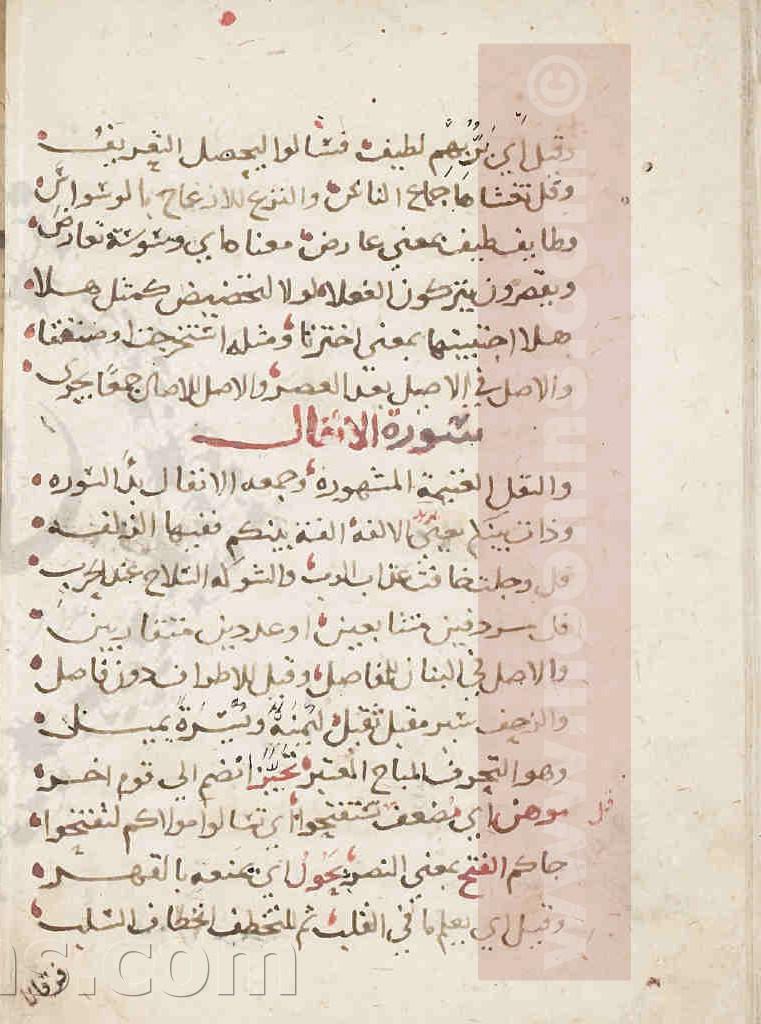 وقيل أي بربهم لطيف فسالوا ليحصل التعريف
وقل تغشاها جماع الناس والنزغ للازعاج بالوسواس
وطايف طيف بمعني عارض معناه اي وسوسة تعارض
ويقصرون يتركون الفعلا لولا لتحضيض كمثل هلا
هلا اجتبيتها بمعني اخترتا ومثله استخرجت او صنفتا
والاصل في الاصيل بعد العصر والاصل للاصال جمعا يجري
سورة الانفال
والنفل الغنيمة المشهوره وجمعه الانفال بدا السوره
وذات بينكم يعني الالفة بينكم ففيها الزلفه
قل وجلت خافت عذاب الرب والشوكة السلاح عند الحرب
قل مردفين متتابعين او عددين متقاربين
والاصل في البنان للمفاصل وقيل للاطراف دون فاصل
والزحف سير مقبل ثقيل ليمنة ويسرة يميل
وهو التحرف المباح المعتبر تحيز انضم الي قوم اخر
قل موهن اي مضعف تستفتحوا اي تسالوا مولاكم لتفتحوا
جاكم الفتح بمعني النصر يحول اي يمنعه بالقهر
وقيل اي يعلم ما في القلب ثم للتخطف اختطاف السلب
فرقانا
www.
ns.com